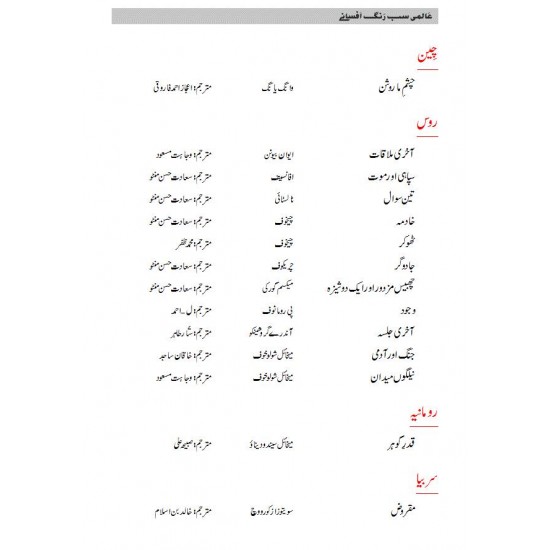 عالمی سب رنگ افسانے
چین
چشم ما روشن وانگ یانگ مترجم: اعجاز احمد فاروقی
روس
آخری ملاقات ایوان بیونن مترجم: وجاہت مسعود
سپاہی اور موت افانسیف مترجم: سعادت حسن منٹو
تین سوال ٹالسٹائی مترجم: سعادت حسن منٹو
خادمہ چیخوف مترجم: سعادت حسن منٹو
ٹھوکر چیخوف مترجم: محمد ظفر
جادوگر چریکوف مترجم: سعادت حسن منٹو
چھبیس مزدور اور ایک دوشیزہ میکسم گورکی مترجم: سعادت حسن منٹو
وجود پی رومانوف مترجم: ل۔احمد
آخری جلسہ آندرے گروشینکو مترجم: ستار طاہر
جنگ اور آدمی میخائل شولوخوف مترجم: خاقان ساجد
نیلگوں میدان میخائل شولوخوف مترجم: وجاہت مسعود
رومانیہ
قدرِ گوہر میخائل سیندودیناؤ مترجم: صبیحہ علی
سربیا
مقروض سویتوزار کورووچ مترجم: خالد بن اسلام